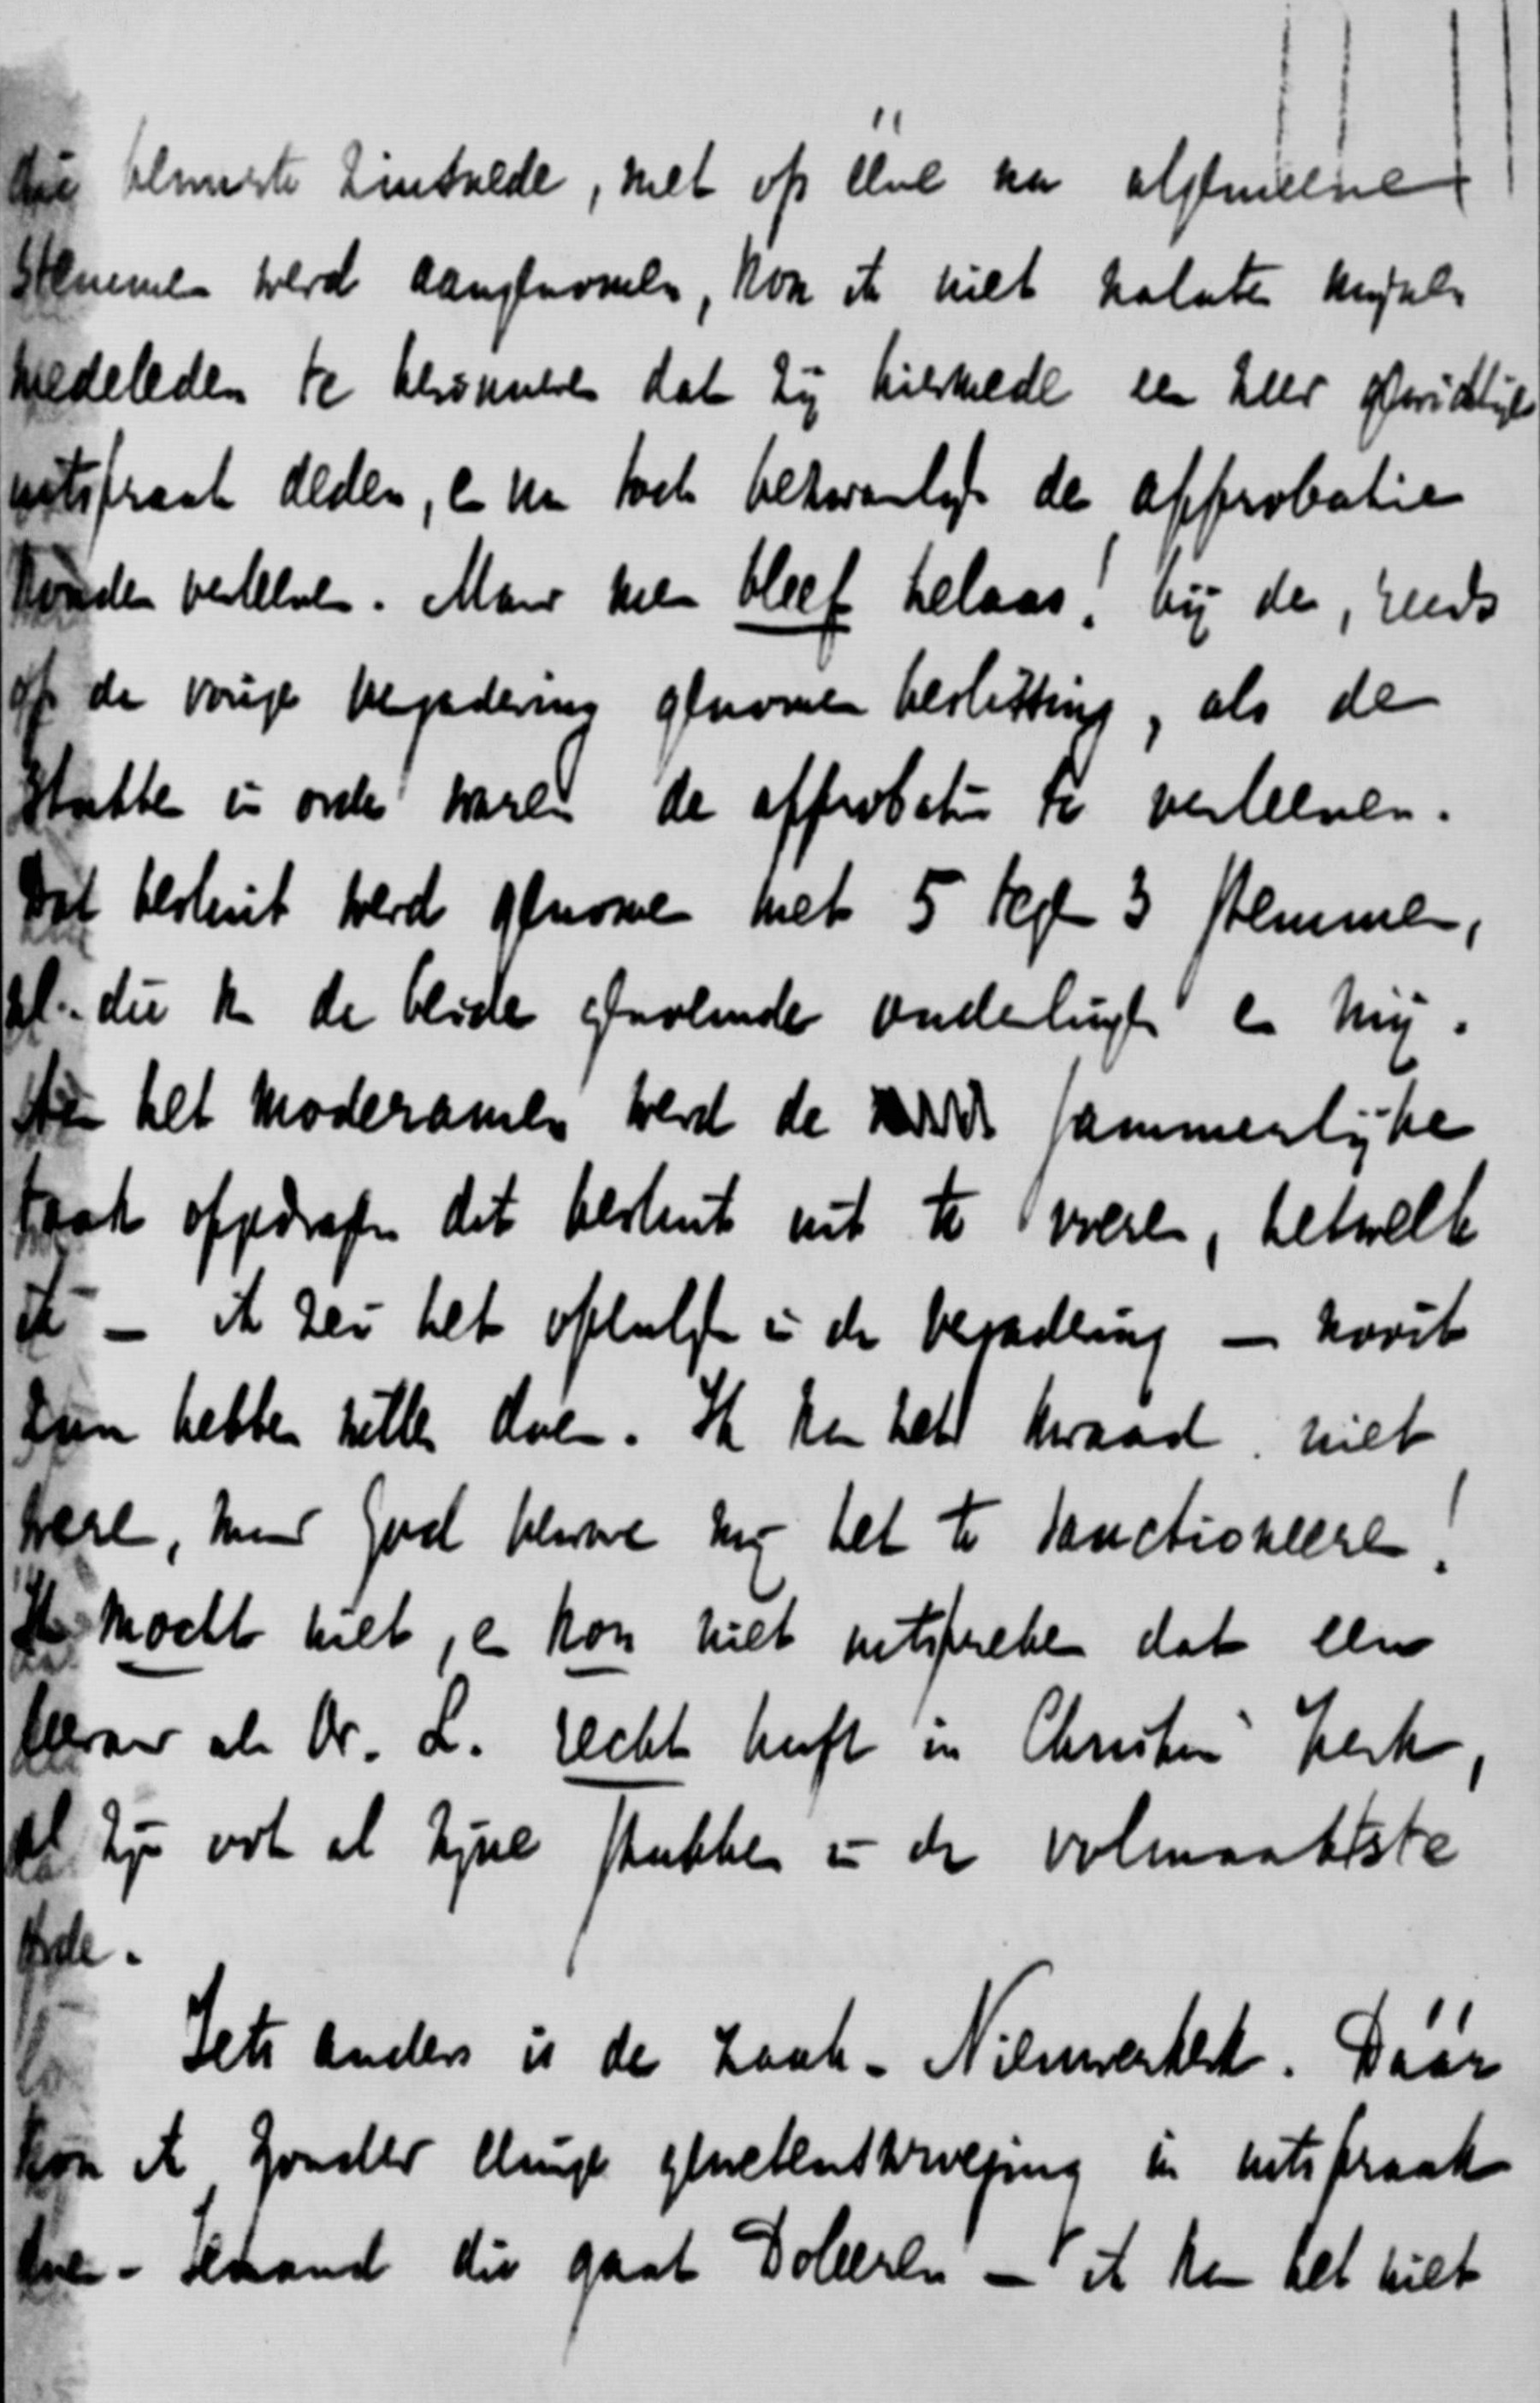 die bewuste zinsnede, met op ééne na algemeene
stemmen werd aangenomen, kon ik niet nalaten mijne
medeleden te herinneren dat zij hiermede een zeer gewichtige
uitspraak deden, en nu toch bezwaarlijk de approbatie
konden verleenen. Maar men bleef helaas! bij de, reeds
op de vorige vergadering genomen beslissing, als de
stukken in orde waren de approbatie te verleenen.
Dat besluit werd genomen met 5 tegen 3 stemmen,
nl. die van de beide genoemde ouderlingen en mij.
Aan het moderamen werd de jammerlijke
taak opgedragen dit besluit uit te voeren, hetwelk
ik – ik zei het openlijk in de vergadering – nooit
zou hebben willen doen. Ik kan het kwaad niet
weren, maar God beware mij het te sanctioneeren!
Ik mocht niet, en kon niet uitspreken dat een
leeraar als Dr. L. recht heeft in Christus' Kerk,
al zijn ook al zijne stukken in de volmaaktste
orde.
Iets anders is de zaak-Niemerkerk. Dáár
kon ik zonder eenige gewetensbeweging in uitspraak
doen. Iemand die gaat Doleeren – ik kan het niet